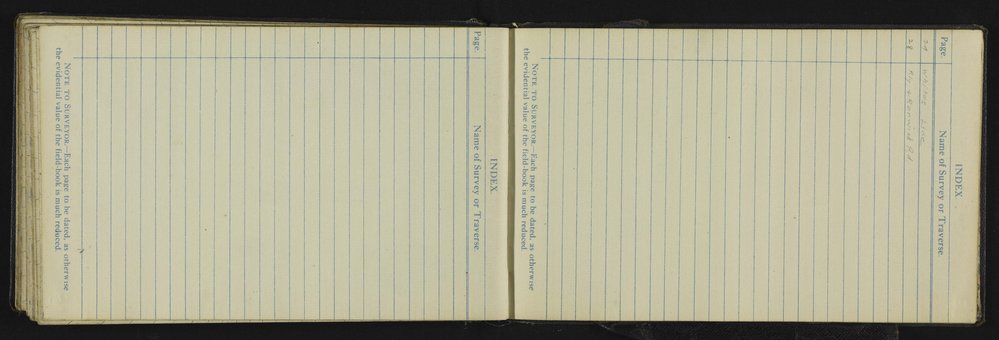 INDEX.
Page. Name of Survey or Traverse.
24 Whites Line
28 Rly & Renwick Rd
NOTE TO SURVEYOR.—Each page to be dated, as otherwise
the evidential value of the field-book is much reduced.
INDEX.
Page. Name of Survey or Traverse.
NOTE TO SURVEYOR.—Each page to be dated, as otherwise
the evidential value of the field-book is much reduced.